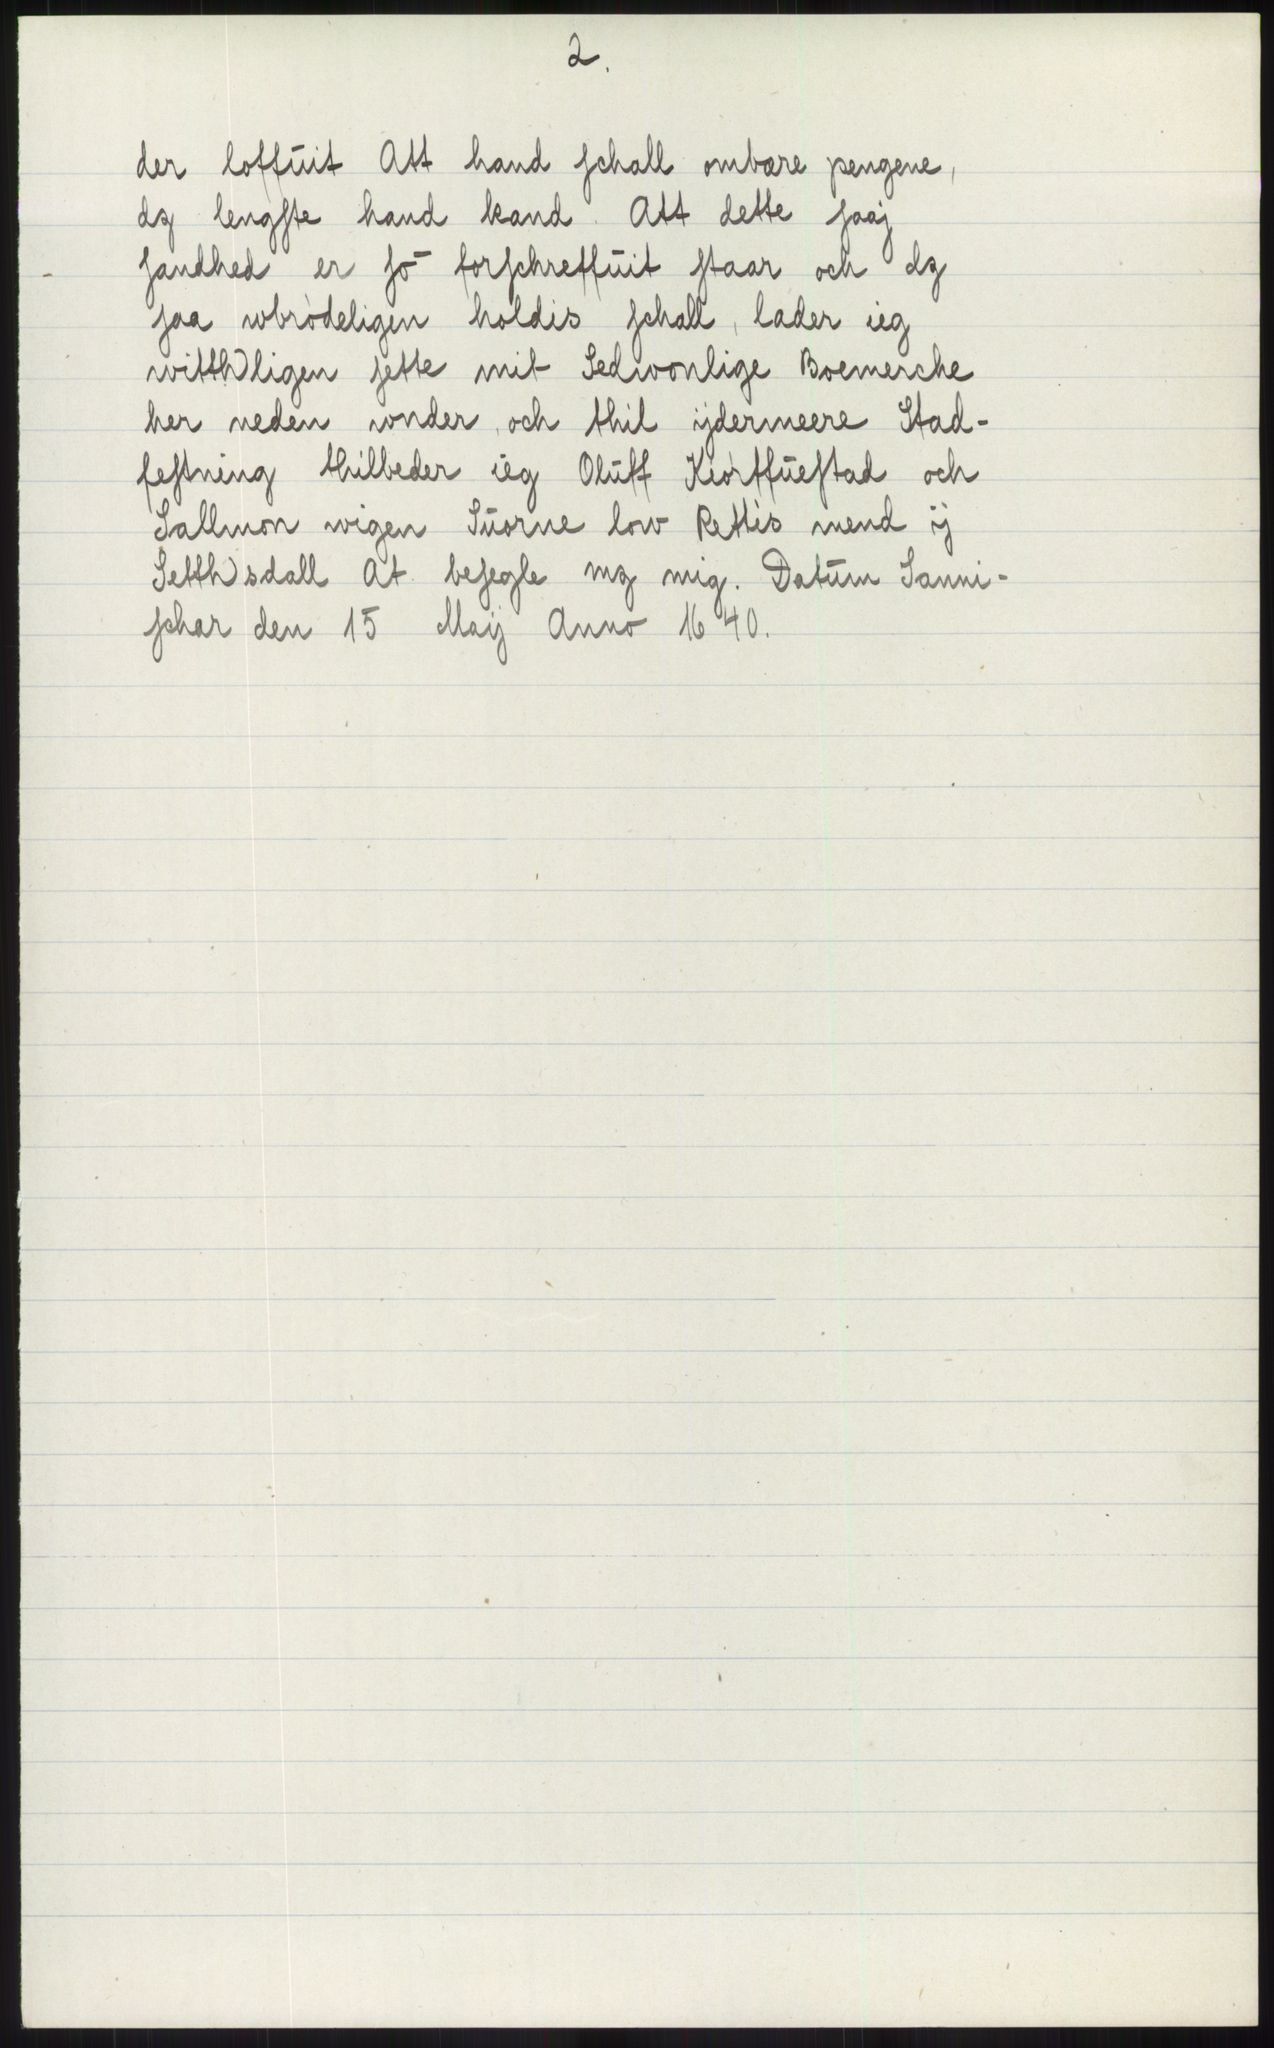 2.
der loffuit Att hand schall ombære pengene,
dz lengste hand kand. Att dette saaj
sandhed er so forschreffuit staar och dz
saa wbrødeligen holdis schall, lader ieg
witth)ligen sette mit Sedwonlige Boemerche
her neden wnder, och thil ijdermeere Stad-
festning thilbeder ieg Oluff Kiortfuestad och
Sallmon wigen Suorne low Rettis mend ij
Setth)sdall At besegle mz mig. Datum Sanni-
schar den 15 Maij Anno 1640.